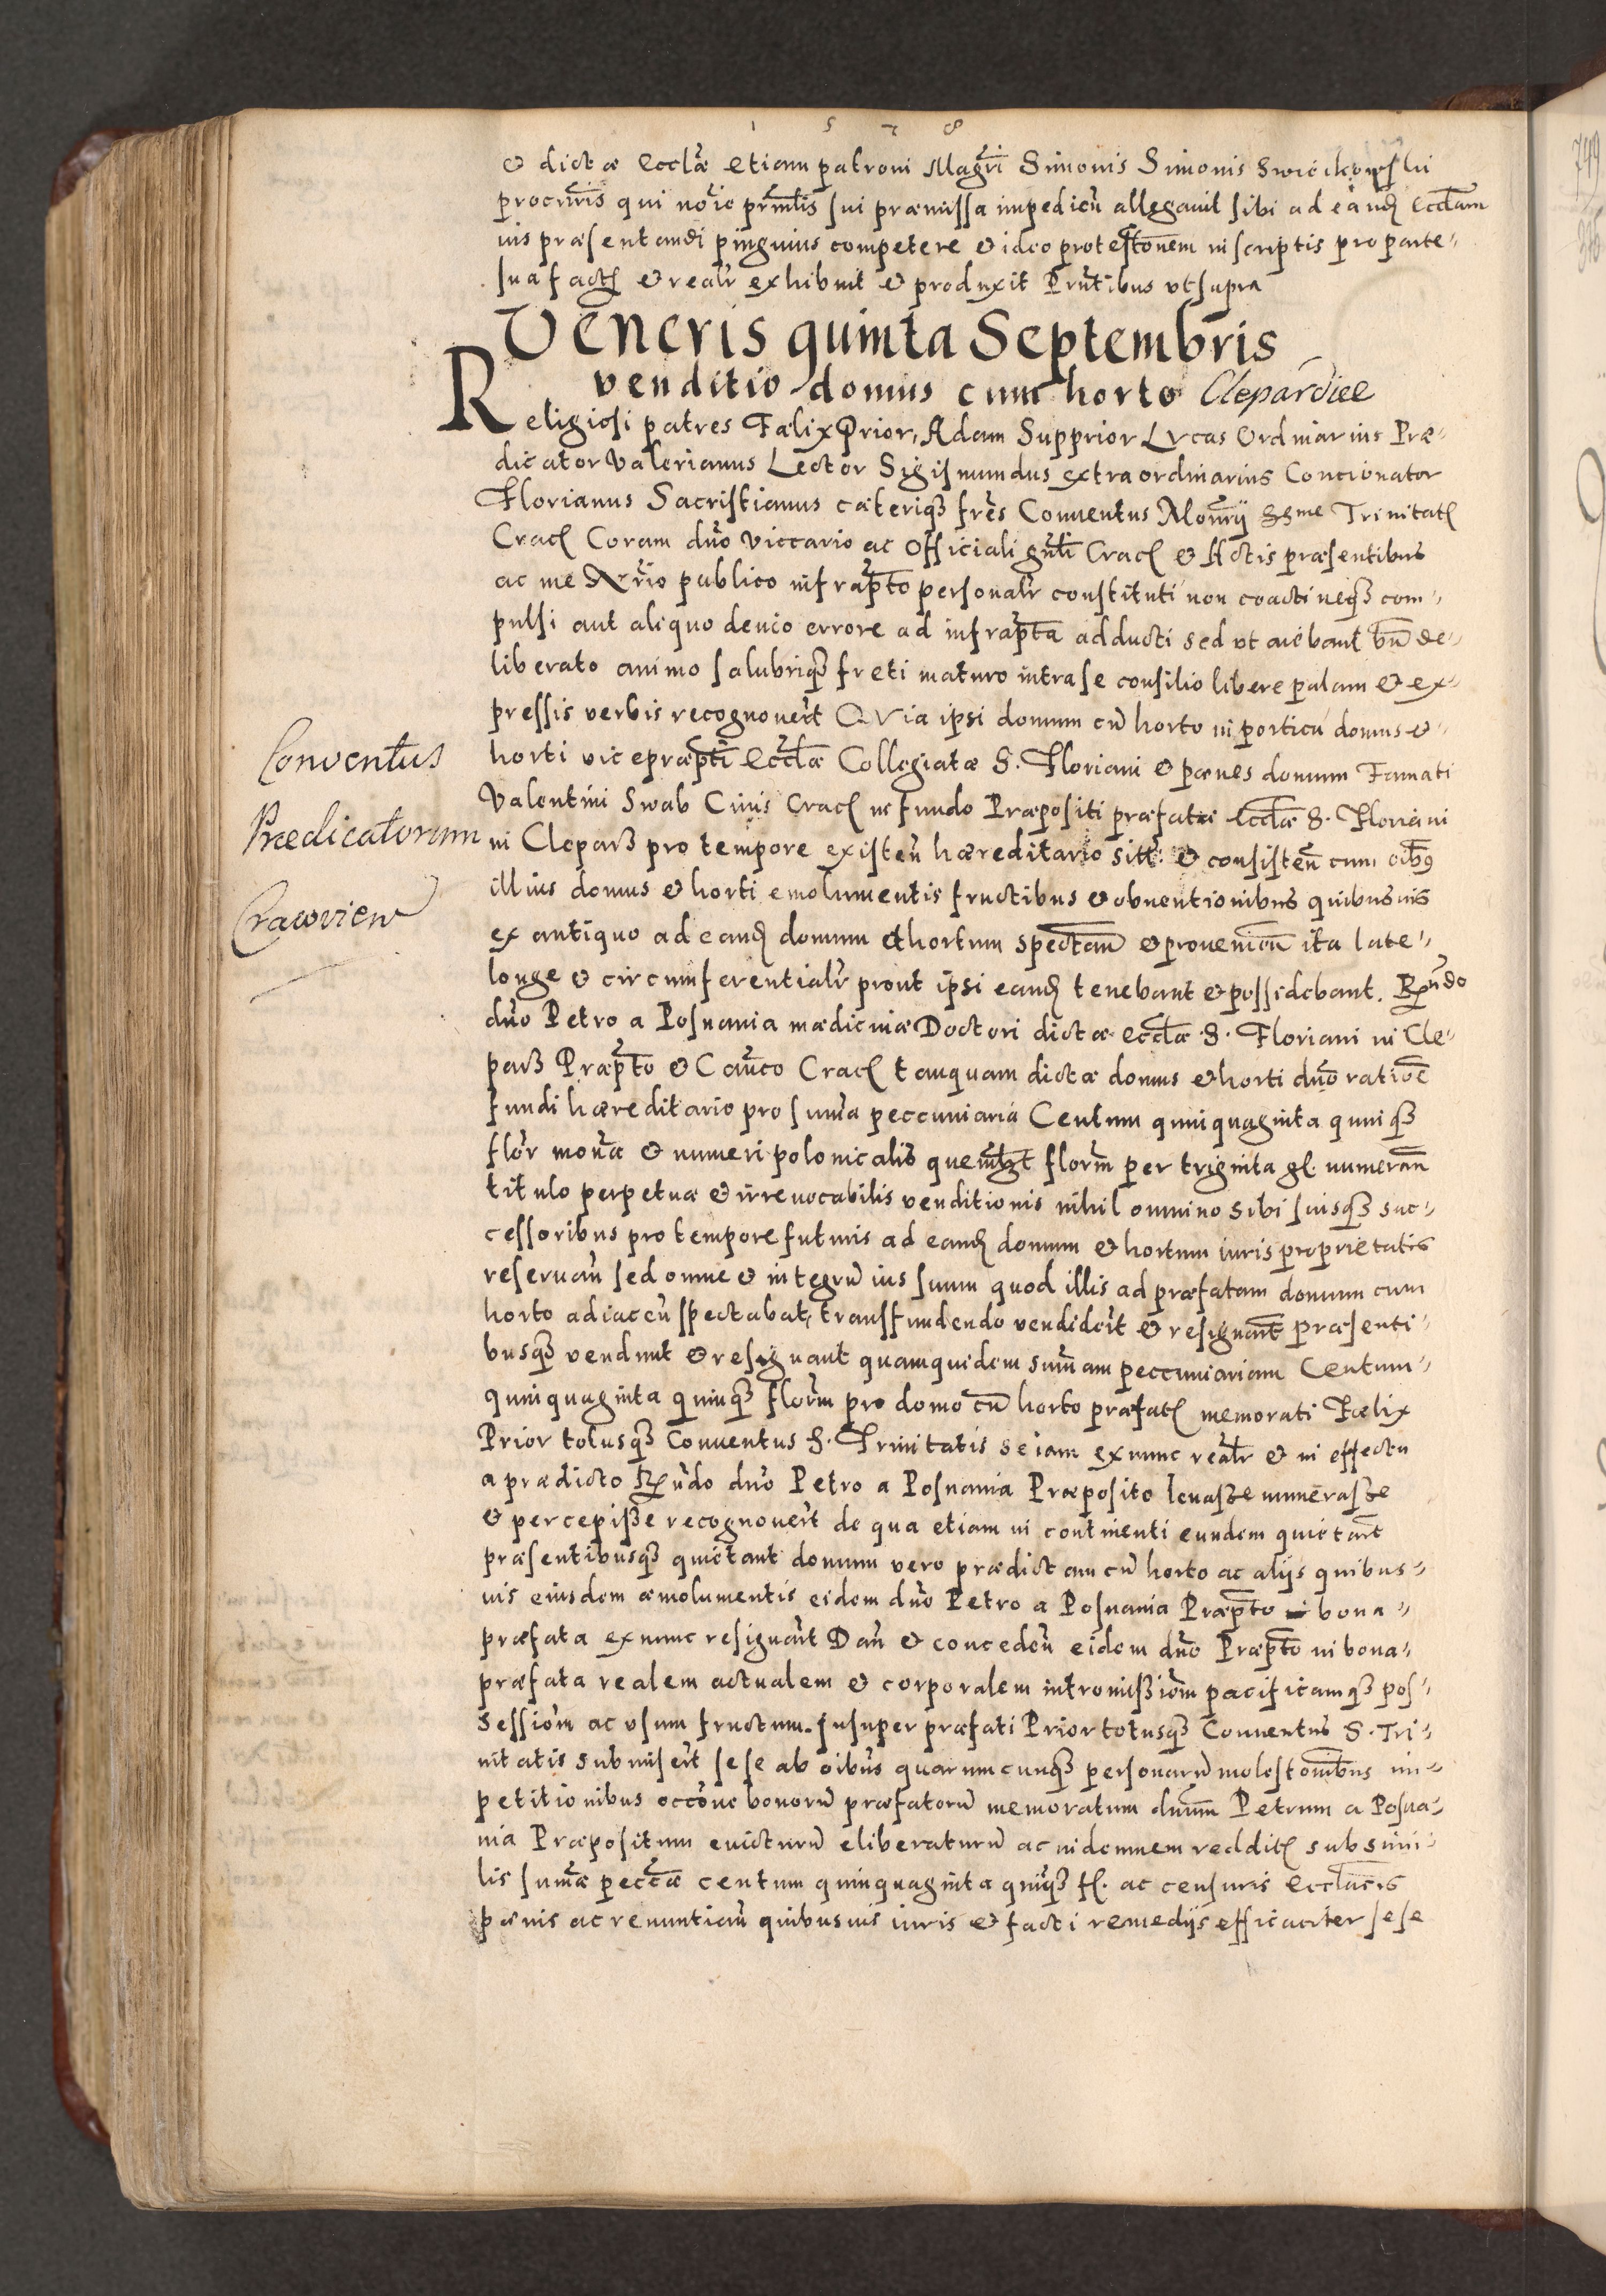 1578
& dictæ Ecclæ etiam patroni Magri Simonis Simonis
procuris qui noĩe prmlis sui præmissa impedień allegavit sibi ad eand Ecclam
ius præsentandi pinguius competere & ideo protestonem in scriptis pro parte
sua fact & realr exhibuit & produxit Prntibus vt supra
Veneris quinta Septembris
venditio domus cum horto Clepardiee
Religiosi patres Fælix Prior, Adam Supprior Lvcas Ordinarius Præ-
dicator Valerianus Lector Sigismundus extraordinarius Concionator
Florianus Sacristianus cæteriqz frẽs Conuentus Monrij SSme Trinitat
Crac Coram dño viccario ac Officiali gnli Crac & Actis præsentibus
ac me Nrio publico infrapto personalr constituti non coacti neqz com-
pulsi aut aliquo deuio errore ad infrapta adducti sed vt aiebant bñ de-
liberato animo salubriqz freti maturo intra se consilio libere palam & ex-
pressis verbis recognouert QVia ipsi domum cũ horto in porticu domus &
horti vicepræpti Ecclæ Collegiatæ S. Floriani & pænes domum Famati
Valentini Swab Ciuis Crac in fundo Præpositi præfatæ Ecclæ S. Floriani
in Clepar pro tempore existeñ hæreditario sitt & consisteñ cum oibus
illius domus & horti emolumentis fructibus & obuentionibus quibusuis
ex antiquo ad eand domum & hortum spectañ & prouenieñ ita late
longe & circumferentialr prout ipsi eand tenebant & possidebant. Rndo
dño Petro a Posnania mædicinæ Doctori dictæ ecclæ S. Floriani in Cle-
par Præpto & Canco Crac tanquam dictæ domus & horti dño ratiõe
fundi hæreditario pro summa peccuniaria Centum quinquaginta quinqz
flor monæ & numeri polonicalis quemlbt florm per triginta gl. numerañ
titulo perpetuæ & irreuocabilis venditionis nihil omnino sibi suisqz suc-
cessoribus pro tempore futuris ad eand domum & hortum iuris proprietatis
reseruań sed omne & integrũ ius suum quod illis ad præfatam domum cum
horto adiaceń spectabat, transfundendo vendidert & resignart præsenti-
busqz vendunt & resignant quamquidem summam peccuniariam Centum
quinquaginta quinqz florm pro domo cũ horto præfat memorati Fælix
Prior totusqz Conuentus S. Trinitatis se iam ex nunc realr & in effectu
a prædicto Rndo dño Petro a Posnania Præposito leuasse numerasse
& percepisse recognouert de qua etiam in continenti eundem quietart
præsentibusqz quietant domum vero prædictam cũ horto ac alijs quibus-
uis eiusdem æmolumentis eidem dño Petro a Posnania Præpto bona
præfata ex nunc resignart Dań & concedeń eidem dño Præpto in bona
præfata realem actualem & corporalem intromissiom pacificamqz pos-
sessiom ac vsum fructum. Insuper præfati Prior totusqz Conuentus S. Tri-
nitatis submisert sese ab oibus quarumcunqz personarũ molestonibus im-
petitionibus occõne bonorũ præfatorũ memoratum dnum Petrum a Posna-
nia Præpositum euicturũ eliberaturũ ac indemnem reddit sub simi-
lis summæ peccæ centum quinquaginta quinqz fl. ac censuris Ecclacis
pænis ac renuntiań quibusuis iuris & facti remedijs efficaciter sese
Conventus
Prædicatorum
Cracovien